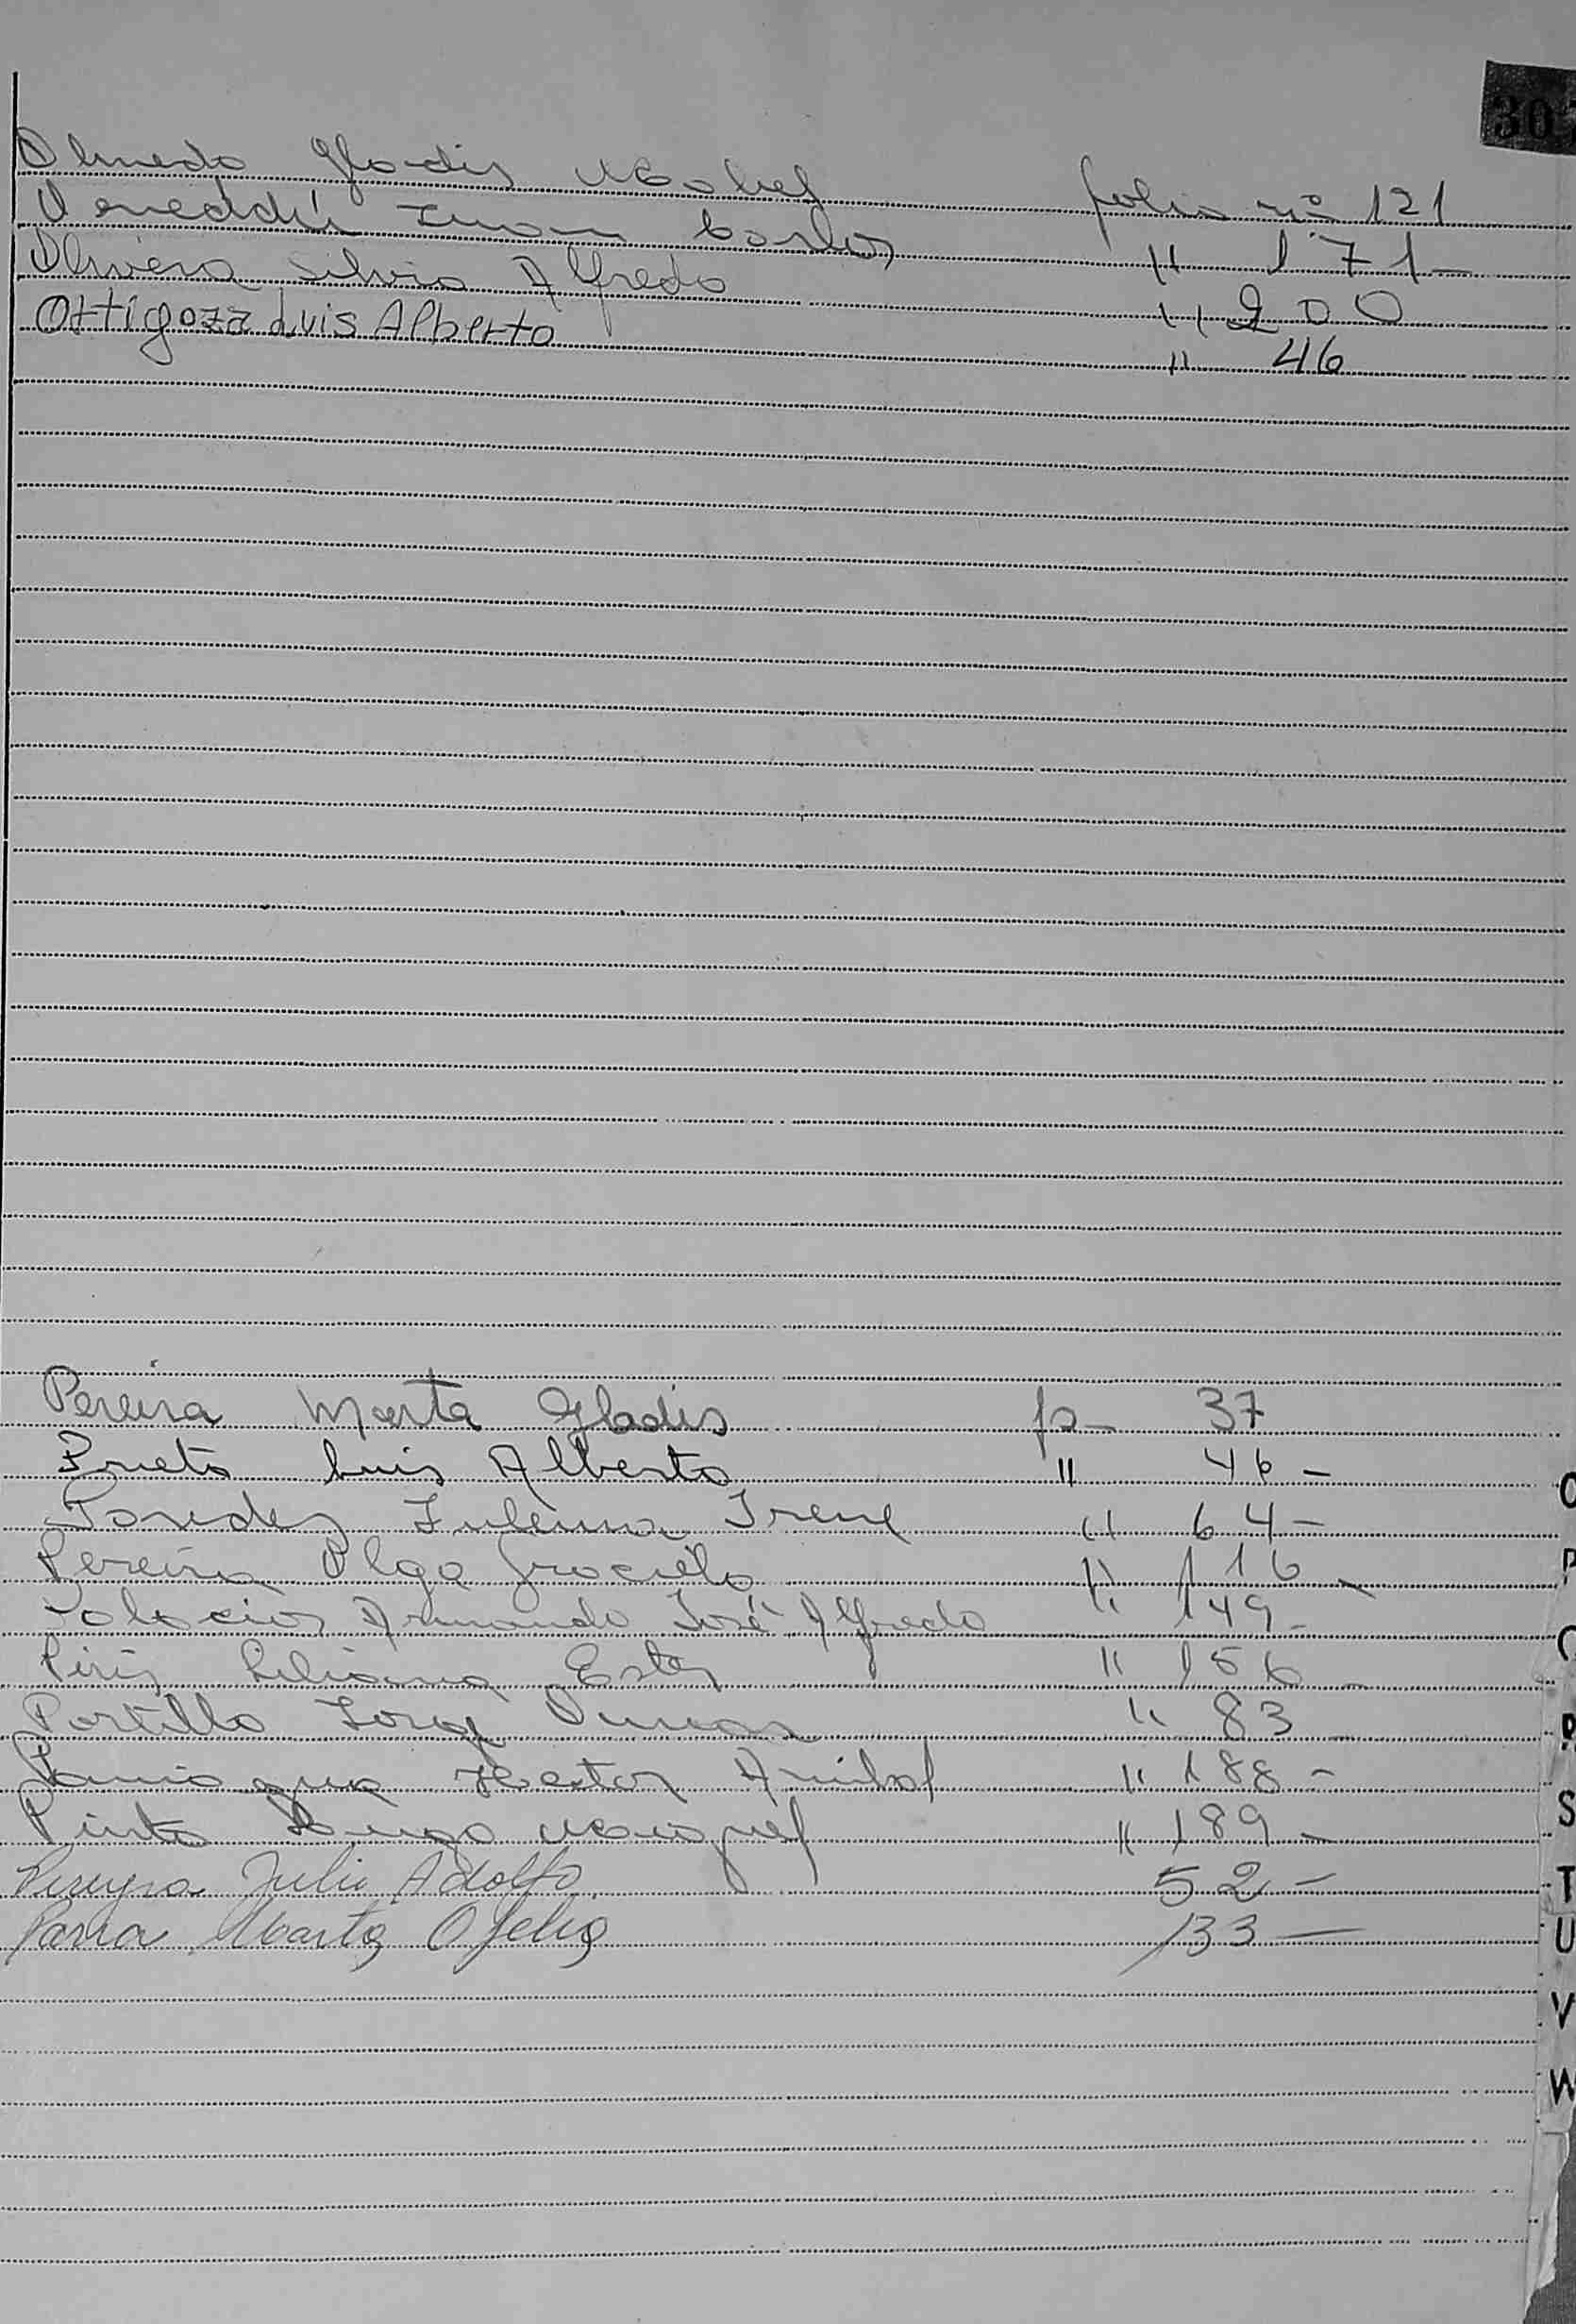 307
Olmedo Gladis Mabel folio nº 121
Juan Carlos " 171-
Olivera Silvio Alfredo " 200
Ortigoza Luis Alberto " 46
Pereira Marta Gladis fo- 37
Prieto Luis Alberto " 46-
Paredez Zulema Irene " 64-
Pereira Olga Graciela " 116-
Palacios Armando José Alfredo " 149-
Piris Liliana Ester " 156-
Portillo Jorge " 83-
Paniagua Hector Anibal " 188-
Pinto Hugo " 189-
Pereyra Julio Adolfo 52-
Parra Marta Ofelia 133-
O
P
Q
R
S
T
U
V
W